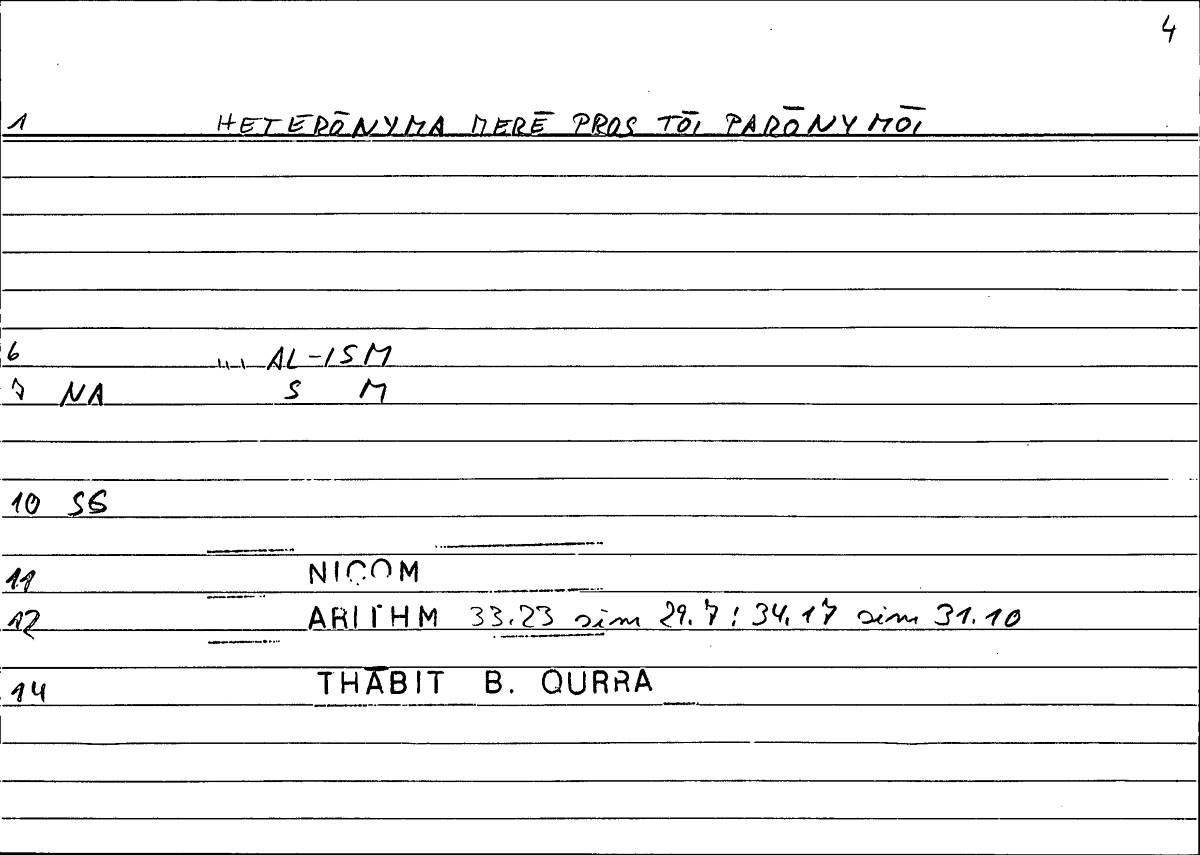 4
1 HETERŌNYMA MERĒ PROS TŌI PARŌNYMŌI
6 ,,,, AL-ISM
7 NA S M
10 SG
11 NICOM
12 ARITHM 33.23 sim 29.7; 34.17 sim 31.10
14 THĀBIT B. QURRA